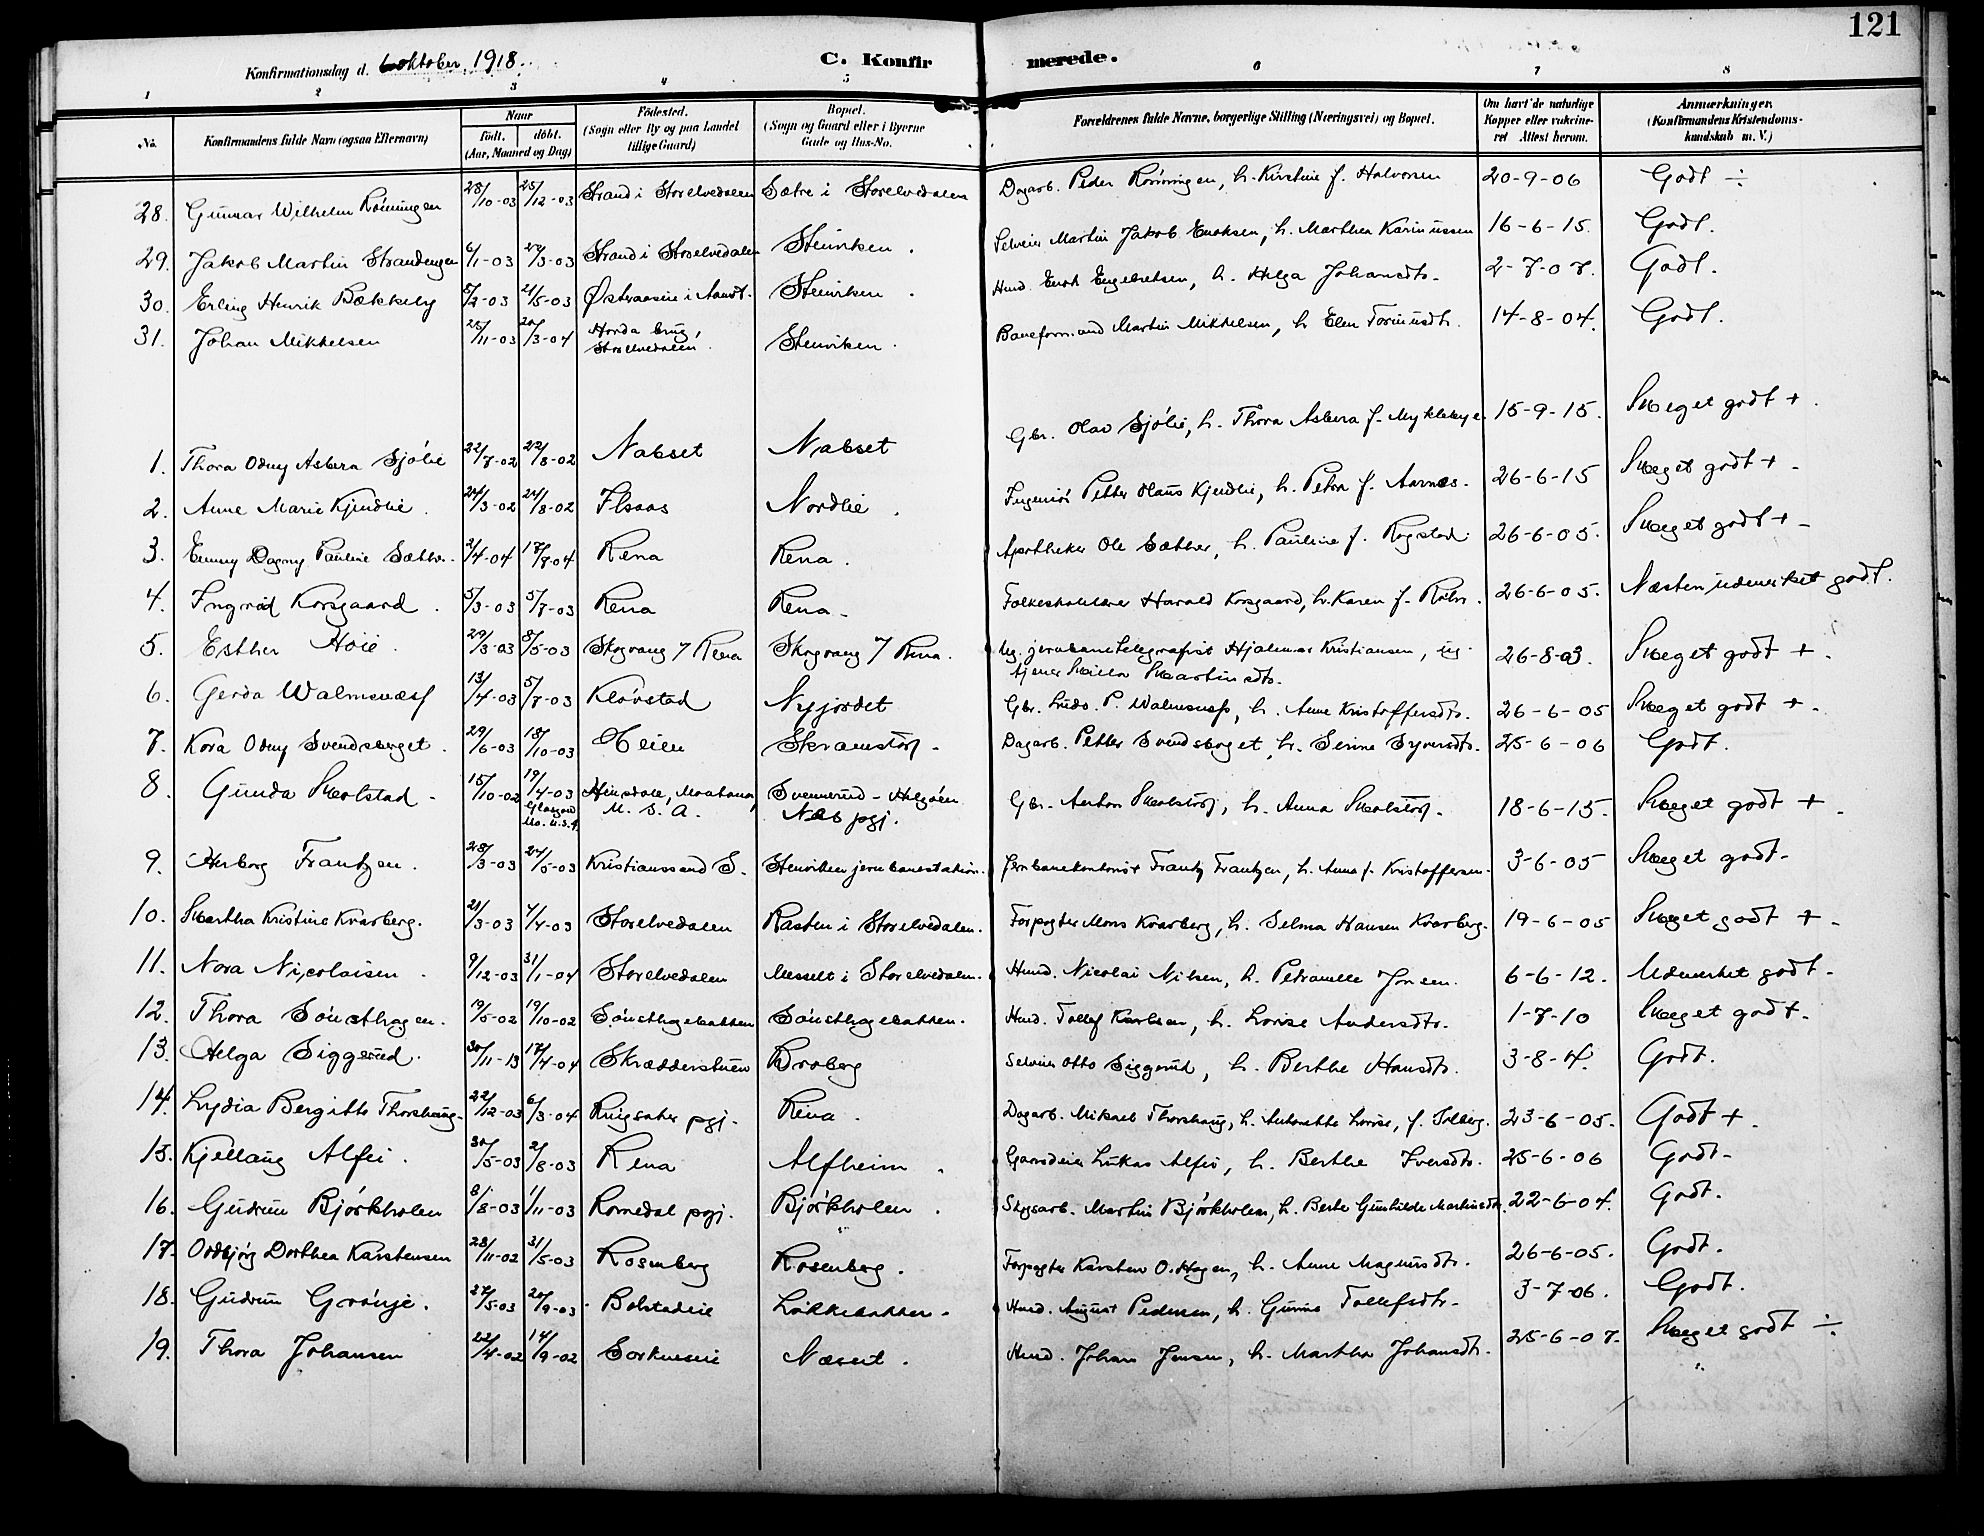 121
Konfirmationsdag d. 6 oktober 1918.
C. Konfirmerede.
1 2 3 4 5 6 7 8
No. Konfirmandens fulde Navn (ogsaa Efternavn) Naar født. døbt. (Aar, Maaned og Dag) Födested. (Sogn eller By og paa Landet tillige Gaard) Bopæl. (Sogn og Gaard eller i Byerne Gade og Hus-No. Forældrenes fulde Navne, borgerlige Stilling (Næringsvei) og Bopæl. Om havt de naturlige Kopper eller vakcineret Attest herom. Anmærkninger. (Konfirmandens Kristendomskundskab m. V.)
28. Gunnar Wilhelm Rönningen 28/10-03 25/12-03 Strand i Storelvedalen Sætre i Storelvedalen Dagarb. Peder Rönningen, h. Kirstine f. Halvorsen 20-9-06 Godt ÷
29. Jakob Martin Strandengen 6/1-03 /3-03 Strand i Storelvedalen Stenviken. Selveier Martin Jakob Enoksen, h. Marthea 16-6-15. Godt.
30. Erling Henrik Bækkely 8/2-03 21/5-03 Østeraasen i Aamot. Stenviken. Husd. Enok Engebretsen, h. Helga Johansdtr. 2-7-07. Godt.
31. Johan Mikkelsen 25/11-03 20/3-04 brug, Storelvedalen. Stenviken. Baneformand Martin Mikkelsen, h. Elen 14-8-04. Godt.
1. Thora Odny Asbera Sjölie 22/7-02 22/8-02 Nabset Nabset Gbr. Olav Sjölie, h. Thora Asbera f. Myklebye 15-9-15. Meget godt +.
2. Anne Marie Kjendlie. 24/3-02 24/8-02 Ilsaas Nordlie. Ingeniör Petter Olaus Kjendlie, h. Petra f. Aarnæs. 26-6-15 Meget godt +
3. Emmy Dagny Pauline Sæther. 2/4-04 17/7-04 Rena Rena. Apotheker Ole Sæther, h. Pauline f. Rogstad. 26-6-05. Meget godt +
4. Ingrid Korsgaard. 5/3-03 5/7-03 Rena Rena. Folkeskolelærer Harald Korsgaard, h. Karen f. 26-6-05. Næsten udmerket godt.
5. Esther Höie. 29/3-03 8/5-03 Skogvang 7 Rena Skogvang 7 Rena. Ug. jernbanetelegrafist Hjalmar Kristiansen, ug. 26-8-03. Meget godt +.
tjener Martinsdtr.
6. Gerda Walmsnæss 13/4-03 5/7-03 Klövstad Nyjordet Gbr. Ludv. P. Walmsnæss, h. Anne Kristoffersdtr. 26-6-05 Meget godt +.
7. Kora Odny Svendsberget. 29/6-03 18/10-03 Skramstad. Dagarb. Petter Svendsberget, h. Serine Syversdtr. 25-6-06 Godt.
8. Gunda Molstad. 15/10-02 19/4-03 Glasgow Mo. U.S.A. Hinsdale, Montana, U. S. A. Svennerud - Helgöen Næs pgj. Gbr. Anton Molstad, h. Anna Molstad. 18-6-15. Meget godt +.
9. Herborg Frantzen. 28/3-03 24/5-03 Kristianssand S. Stenviken jernbanestation. Jernbanekontorist Frantz Frantzen, h. Anna f. Kristoffersen. 3-6-05 Meget godt.
10. Martha Kristine Kværberg. 21/3-03 /4-03 Storelvedalen Rasten i Storelvedalen. Forpagter Mons Kværberg, h. Selma Hansen Kværberg. 19-6-05 Meget godt +.
11. Nora Nicolaisen. 9/12-03 31/1-04 Storelvedalen Messelt i Storelvedalen. Husd. Nicolai Nilsen, h. Petronelle Jonsen. 6-6-12. Udmerket godt.
12. Thora Sönsthagen. 19/5-02 19/10-02 Sönsthagebakken Sönsthagebakken. Husd. Tollef Karlsen, h. Lovise Andersdtr. 1-7-10 Meget godt.
13. Helga Siggerud. 30/11-13 17/4-04 Skrædderstuen Broberg Selveier Otto Siggerud, h. Berthe Hansdtr. 3-8-4. Godt.
14. Lydia Bergitte Thorshaug. 22/12-03 6/3-04 Ringsaker pgj. Rena. Dagarb. Mikael Thorshaug, h. Antonette Lovise, f. Solberg. 23-6-05. Godt +.
15. Kjellaug Alfei. 30/5-03 2/8-03 Rena Alfheim. Gaardeier Lukas Alfei, h. Berthe Iversdtr. 25-6-06 Godt.
16. Gudrun Björkholen 8/8-03 1/11-03 Romedal pgj. Björkholen. Skogsarb. Martin Björkholen, h. Berte Gunhilde Martinsdtr. 22-6-04. Godt.
17. Oddbjörg Dorthea Karstensen 28/11-02 31/5-03 Rosenberg Rosenberg. Forpagter Karsten O. Hagen, h. Anne Magnusdtr. 26-6-05. Godt.
18. Gudrun Grönje. 27/5-03 20/9-03. Bolstadeie Lökkebakken. Husd. August Pedersen, h. Gunine Tollefsdtr. 3-7-06. Godt.
19. Thora Johansen 22/4-02 14/9-02 Sorkneseie Næseit. Husd. Johan Jensen, h. Martha Johansdtr. 25-6-07. Meget godt ÷